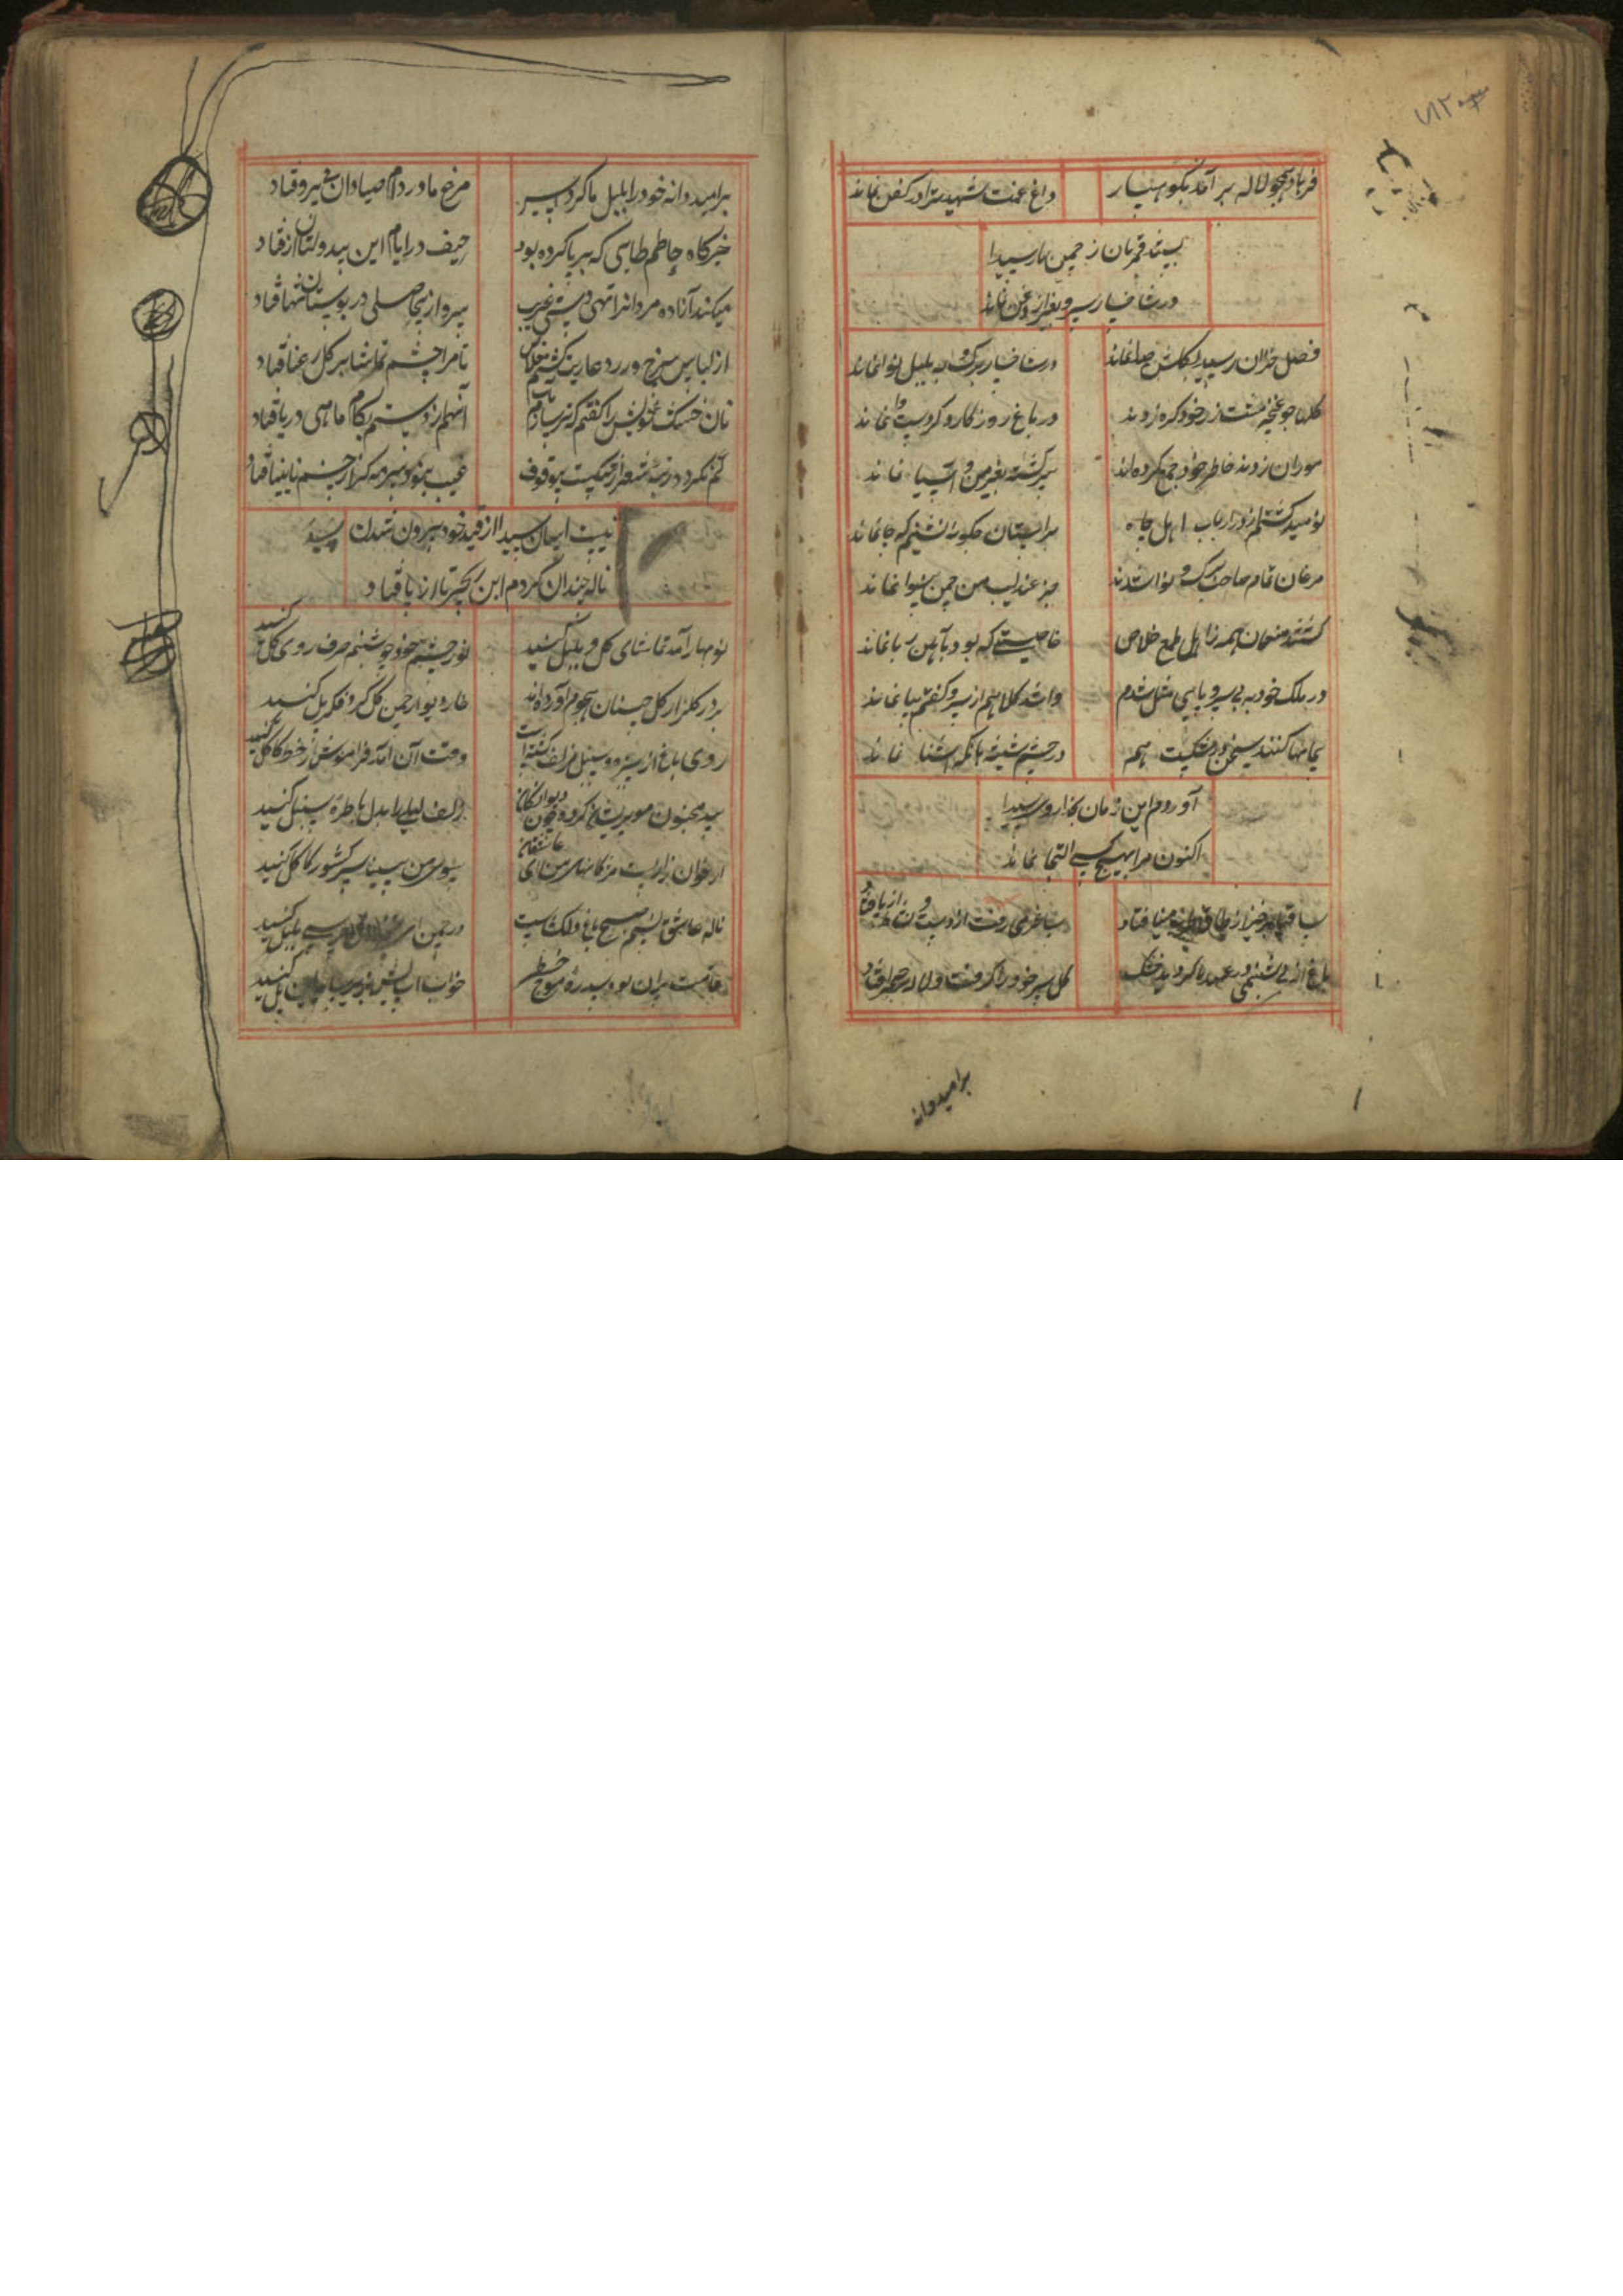 ۷۱۲۰۳
فرهاد همچو لاله برآمد بکوهسار داغ غمت شهید ترا در کفن نماند
بستند قمریان ز چمن بار سیدا
در شاخسار سرو بغیر از زغن نماند
فصل خزان رسید بگلشن صفا نماند در شاخسار برگ و به بلبل نوا نماند
گلها چو غنچه مشت زر خود گره زدند در باغ روزگار و کر دست وا نماند
موران زدند خاطر خود جمع کرده‌اند سرگشته بغیر من و آسیا نماند
نومید گشتم از در ارباب اهل جاه بر آستان چگونه نشینم که جا نماند
مرغان تمام صاحب برگ و نوا شدند جز عندلیب من چمن بینوا نماند
گشتند منعمان همه ز اهل طمع خلاص خاصیتی که بود بآهن ربا نماند
در ملک خود به بی سر و پایی مثل شدم وا شد کلاهم از سر و کفشم بپا نماند
پیمانها کنند سخن در شکست هم در چشم شیشه نگه آشنا نماند
آوردم این زمان بخدا رو سیدا
اکنون مرا بهیچ کسی التجا نماند
ساقیا برخیز از طاق مینا فتاد ساغر می رفت از دست و نشاط از پا فتاد
باغ از بی شبنمی گردید خشک گل سر خود را گرفت و لاله در صحرا فتاد
برامید دانه
برامید دانه خود را بلبل ما کرد اسیر مرغ ما در دام صیادان بی پروا فتاد
خیرگاه حاتم طایی که برپا کرده بود حیف در ایام این بیدولتان از پا فتاد
میکند آزاده مردانرا تهی دستی غریب سرو از بیحاصلی در بوستان تنها فتاد
از لباس سرخ و زرد عاریت گشتم خلاص تا مرا چشم تماشا بر گل رعنا فتاد
نان خشک خویش را گفتم که تر سازم بآب آنهم از دستم بکام ماهی دریا فتاد
کم نگردد رتبه شعر از شکست بیوقوف عیب نبود سرمه گر از چشم نابینا فتاد
نیست آسان سیدا از قید خود بیرون شدن
ناله چندان کردم این زنجیر تا از پا فتاد
نوبهار آمد تماشای گل و بلبل کنید نور چشم خود چو شبنم صرف روی گل کنید
بر در گلزار گل چینان هجوم آورده‌اند خار دیوار چمن گل کرد فکر پل کنید
روی باغ از سبزه و سنبل زلف گشته است وقت آن آمد فراموش از خط و کاکل کنید
بید مجنون مو پریشان کرده چون دیوانگان زلف لیلی را بدل با طره سنبل کنید
ارغوان زار است مژگانهای من ای عاشقان سوی من بینید سیر کشور کابل کنید
ناله عاشق نسیم صبح باغ دلکشاست در چمن بلبل کنید
عاقبت ویران بود سد ره موج خطر خواب آب پل کنید